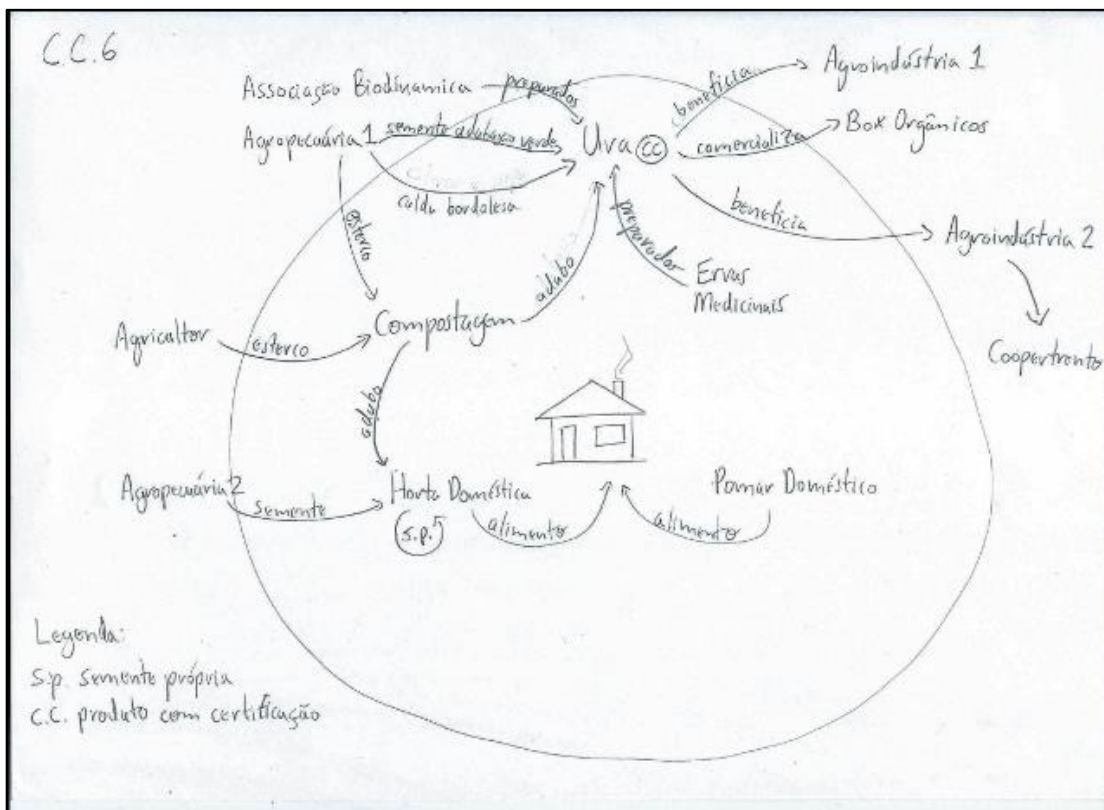 C.C.6
Associação Biodinamica
preparados
Agropecuária 1
semente adubaçao verde
calda bordalesa
esterco
Uva CC
beneficia
Agroindústria 1
comercializa
Box Orgânicos
beneficia
Agroindústria 2
Coopertrento
preparados
Ervas
Medicinais
adubo
Compostagem
Agricultor
esterco
adubo
Agropecuária 2
semente
Horta Doméstica
s.p.
alimento
Pomar Doméstico
alimento
Legenda:
s.p. semente própria
C.C. produto com certificação